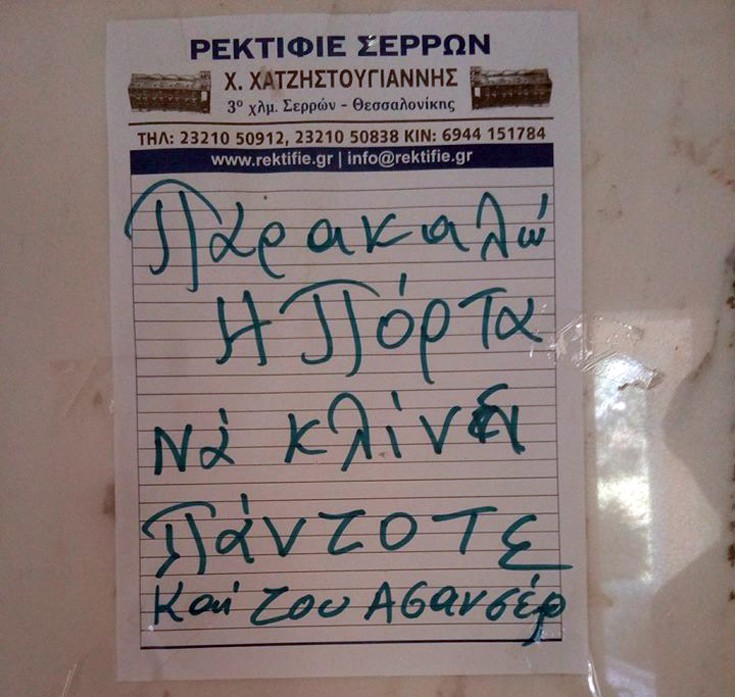 ΡΕΚΤΙΦΙΕ ΣΕΡΡΩΝ
Χ. ΧΑΤΖΗΣΤΟΥΓΙΑΝΝΗΣ
3ο χλμ. Σερρών - Θεσσαλονίκης
ΤΗΛ: 23210 50912, 23210 50838 ΚΙΝ: 6944 151784
www.rektifie.gr | info@rektifie.gr
Παρακαλώ
Η Πόρτα
Νά κλίνει
Πάντοτε
Και του Ασανσέρ